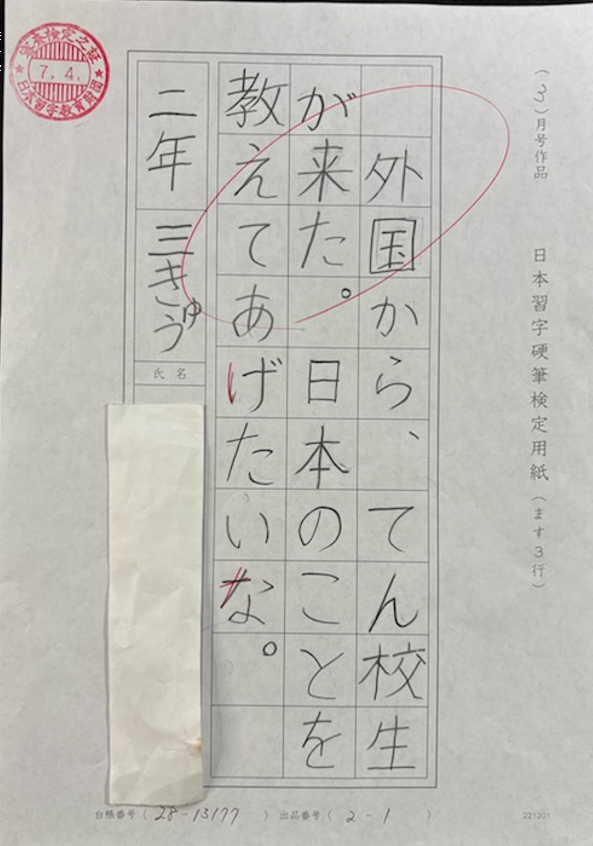 （3）月号作品　日本習字硬筆検定用紙（ます3行）
外国から、てん校生
が来た。日本のことを
教えてあげたいな。
二年　三きゅう
氏名
審査検定之証
7.4.
日本習字教育財団
台帳番号（28-13177）出品番号（2-1）
221201